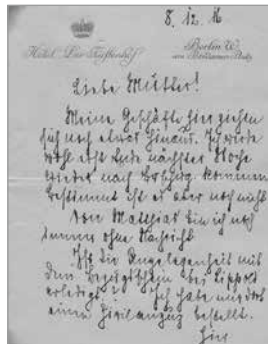 8. 12. 16
Hotel Der Fürstenhof
Berlin W.
am Potsdamer Platz
Liebe Mutter!
Meine Geschäfte hier ziehen
sich noch etwas hinaus. Ich werde
wohl erst Ende nächster Woche
wieder nach Coburg kommen
bestimmt ist es aber noch nicht
Von Matthias bin ich noch
immer ohne Nachricht
Ist die Angelegenheit mit
dem Bezugschein bei Lippold
erledigt? Ich habe mir dort
einen Zivilanzug bestellt.
Hier